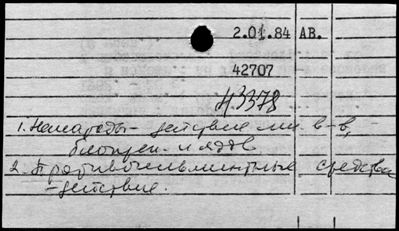 2.01.84 АВ.
42707
Н3378
1. Нематоды - действие на в-в,
и ядов
2. Противогельминтные средства
- действие.